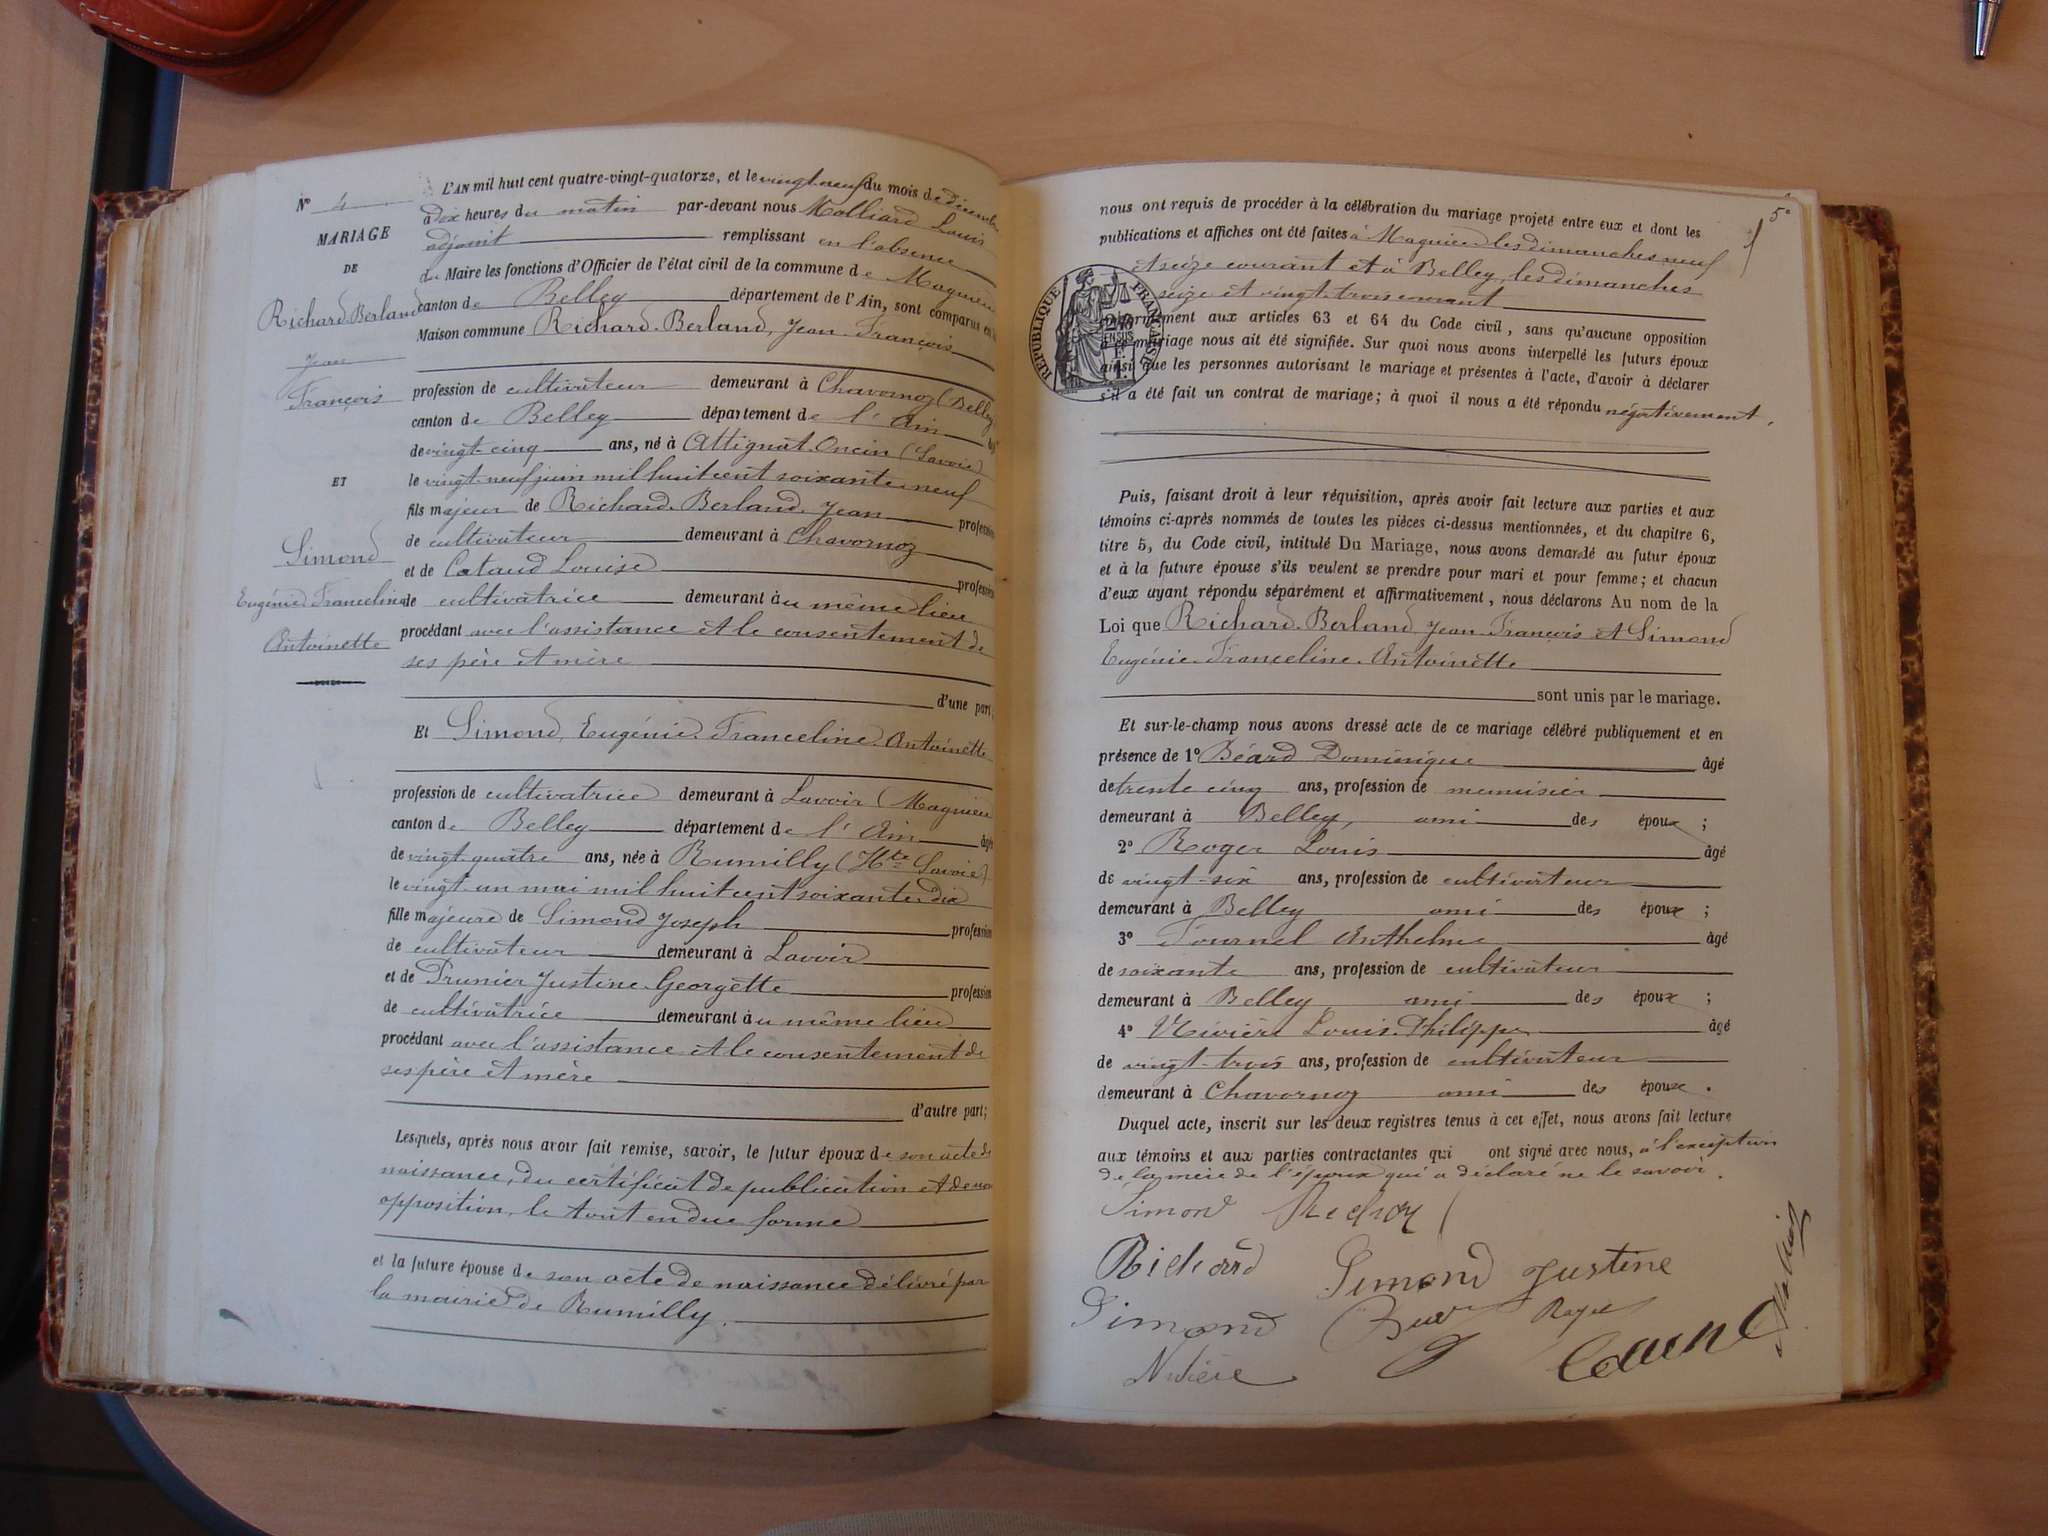 N° 4
MARIAGE
DE
Richard-Berland
Jean
François
ET
Simond
Eugénie Franceline
Antoinette
L'AN mil huit cent quatre-vingt-quatorze, et le vingt-neuf du mois de Décembre
à dix heures du matin par-devant nous Molliard Louis
adjoint remplissant en l'absence
du Maire les fonctions d'Officier de l'état civil de la commune de Magnieu
canton de Belley département de l'Ain, sont comparus en la
Maison commune Richard-Berland, Jean-François
profession de cultivateur demeurant à Chavornoz (Belley)
canton de Belley département de l'Ain
de vingt-cinq ans, né à Attignat-Oncin (Savoie)
le vingt-neuf juin mil huit cent soixante-neuf
fils majeur de Richard-Berland Jean profession
de cultivateur demeurant à Chavornoz
et de Cataud Louise profession
de cultivatrice demeurant au même lieu
procédant avec l'assistance et le consentement de
ses père et mère
d'une part;
Et Simond, Eugénie Franceline Antoinette
profession de cultivatrice demeurant à Lavoir (Magnieu
canton de Belley département de l'Ain âgée
de vingt-quatre ans, née à Rumilly (Hte Savoie)
le vingt-un mai mil huit cent soixante-dix
fille majeure de Simond Joseph profession
de cultivateur demeurant à Lavoir
et de Prunier Justine-Georgette profession
de cultivatrice demeurant au même lieu
procédant avec l'assistance et le consentement de
ses père et mère
d'autre part;
Lesquels, après nous avoir fait remise, savoir, le futur époux de son acte de
naissance, du certificat de publication et de non
opposition, le tout en due forme
et la future épouse de son acte de naissance délivré par
la mairie de Rumilly.
5°
nous ont requis de procéder à la célébration du mariage projeté entre eux et dont les
publications et affiches ont été faites à Magnieu les dimanches neuf
et seize courant et à Belley, les dimanches
seize et vingt-trois courant
RÉPUBLIQUE FRANÇAISE
conformément aux articles 63 et 64 du Code civil, sans qu'aucune opposition
à ce mariage nous ait été signifiée. Sur quoi nous avons interpellé les futurs époux
ainsi que les personnes autorisant le mariage et présentes à l'acte, d'avoir à déclarer
s'il a été fait un contrat de mariage; à quoi il nous a été répondu négativement.
Puis, faisant droit à leur réquisition, après avoir fait lecture aux parties et aux
témoins ci-après nommés de toutes les pièces ci-dessus mentionnées, et du chapitre 6,
titre 5, du Code civil, intitulé Du Mariage, nous avons demandé au futur époux
et à la future épouse s'ils veulent se prendre pour mari et pour femme; et chacun
d'eux ayant répondu séparément et affirmativement, nous déclarons Au nom de la
Loi que Richard-Berland Jean-François et Simond
Eugénie-Franceline-Antoinette
sont unis par le mariage.
Et sur-le-champ nous avons dressé acte de ce mariage célébré publiquement et en
présence de 1° Béard Dominique âgé
de trente cinq ans, profession de menuisier
demeurant à Belley, ami des époux ;
2° Roger Louis âgé
de vingt-six ans, profession de cultivateur
demeurant à Belley ami des époux ;
3° Fournel Anthelme âgé
de soixante ans, profession de cultivateur
demeurant à Belley ami des époux ;
4° Nivière Louis-Philippe âgé
de vingt-trois ans, profession de cultivateur
demeurant à Chavornoz ami des époux .
Duquel acte, inscrit sur les deux registres tenus à cet effet, nous avons fait lecture
aux témoins et aux parties contractantes qui ont signé avec nous, à l'exception
de la mère de l'époux qui a déclaré ne le savoir.
Simond
Richard
Simond Justine
Simond
Nivière